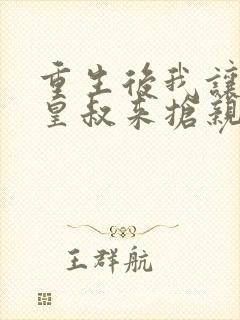 重生後我讓
皇叔來搶親
王群航